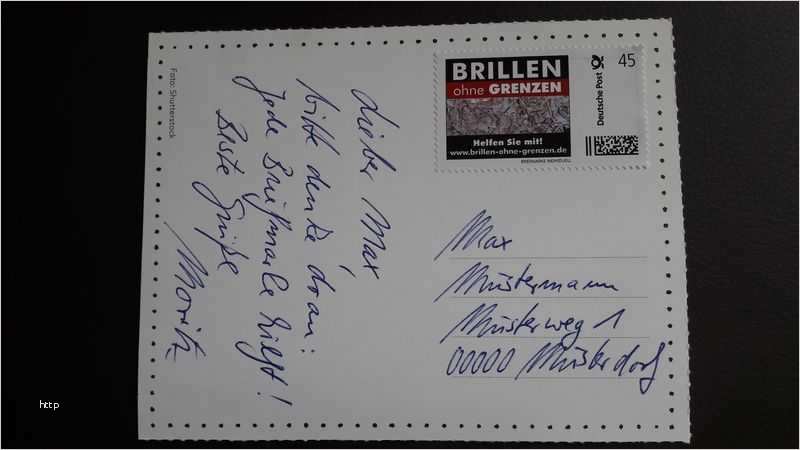 Foto: Shutterstock
Lieber Max,
bitte denke dran:
Jede Briefmarke hilft!
Beste Grüße
Moritz
BRILLEN
ohne GRENZEN
Helfen Sie mit!
www.brillen-ohne-grenzen.de
Deutsche Post
45
BRIEFMARKE INDIVIDUELL
Max
Mustermann
Musterweg 1
00000 Musterdorf
http